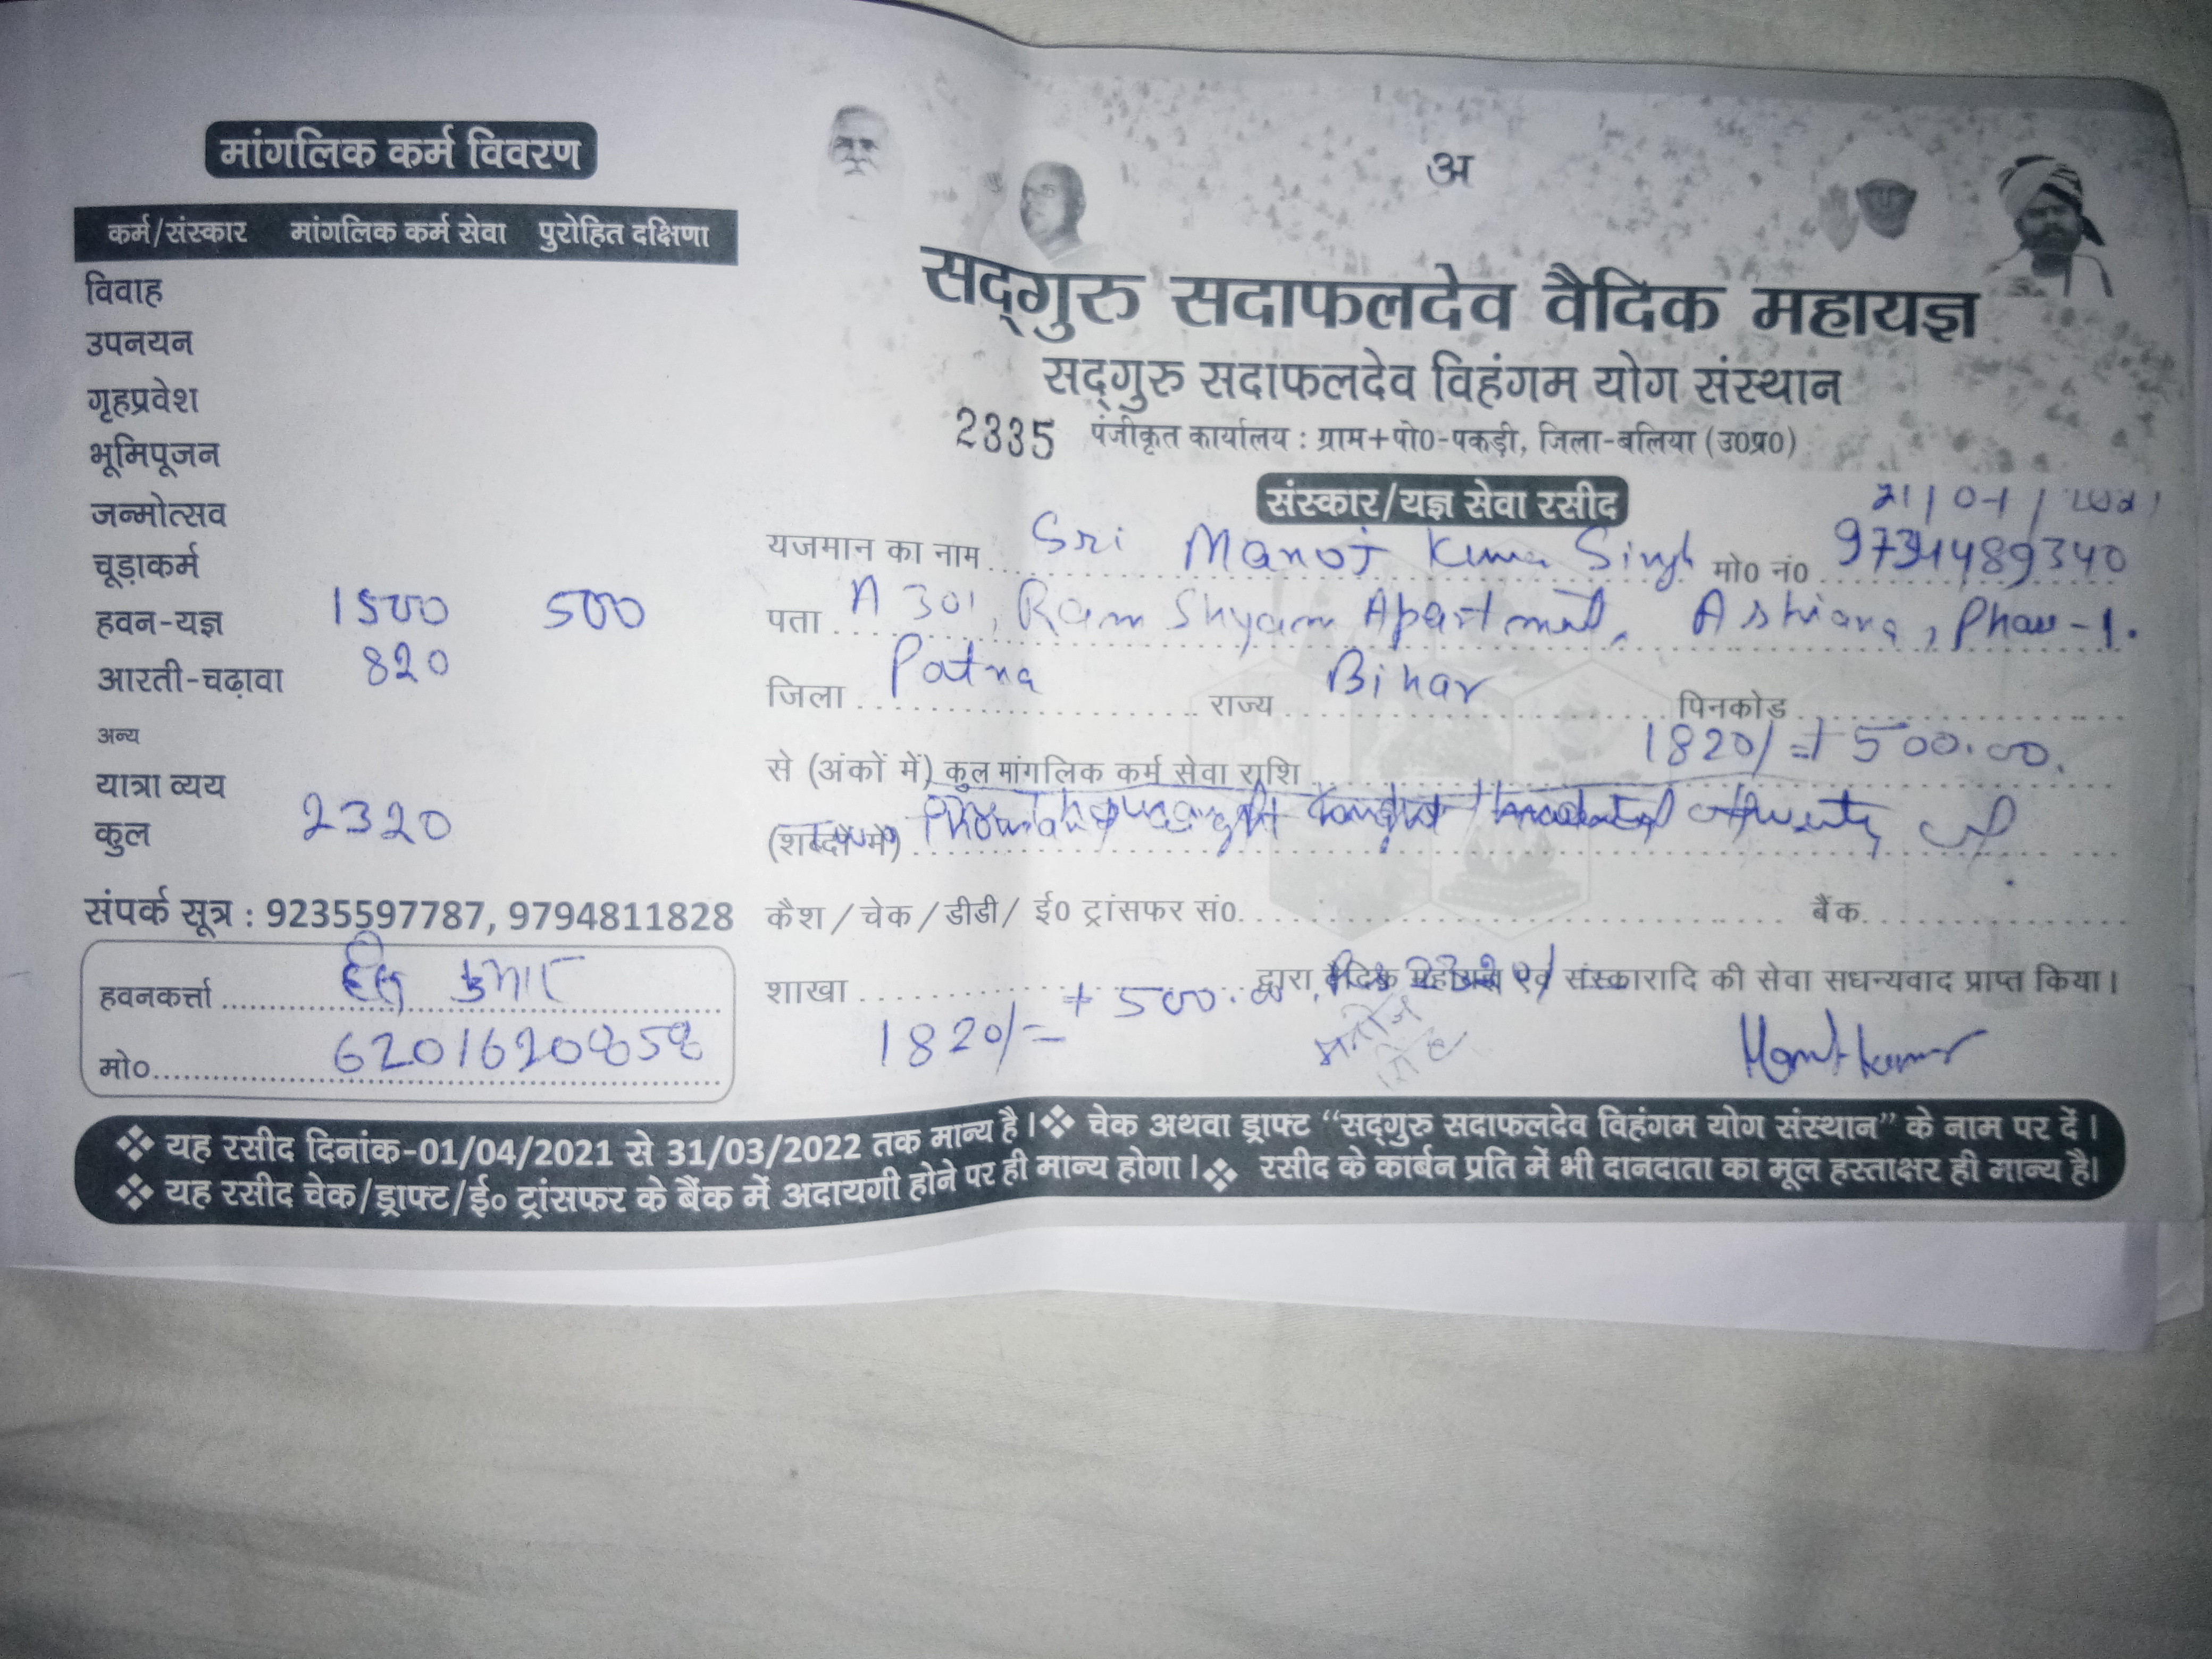 मांगलिक कर्म विवरण
कर्म/संस्कार मांगलिक कर्म सेवा पुरोहित दक्षिणा
विवाह
उपनयन
गृहप्रवेश
भूमिपूजन
जन्मोत्सव
चूड़ाकर्म
हवन-यज्ञ 1500 500
आरती-चढ़ावा 820
अन्य
यात्रा व्यय
कुल 2320
संपर्क सूत्र : 9235597787, 9794811828
हवनकर्त्ता कुमार
मो०
अ
सद्गुरु सदाफलदेव वैदिक महायज्ञ
सद्गुरु सदाफलदेव विहंगम योग संस्थान
2335 पंजीकृत कार्यालय : ग्राम+पो0-पकड़ी, जिला-बलिया (उ0प्र0)
संस्कार/यज्ञ सेवा रसीद
यजमान का नाम Sri Manoj Kumar Singh मो0 नं0
पता A 301, Ram Shyam Apartment, Ashiana, Phase-1.
जिला Patna राज्य Bihar पिनकोड
से (अंकों में) कुल मांगलिक कर्म सेवा राशि 1820/=+ 500.00.
(शब्दों में)
कैश/चेक/डीडी/ ई0 ट्रांसफर सं0. बैंक
शाखा द्वारा वैदिक महायज्ञ एवं संस्कारादि की सेवा सधन्यवाद प्राप्त किया।
1820/= + 500.00
मनोज सिंह
❖ यह रसीद दिनांक-01/04/2021 से 31/03/2022 तक मान्य है। ❖ चेक अथवा ड्राफ्ट “सद्गुरु सदाफलदेव विहंगम योग संस्थान” के नाम पर दें।
❖ यह रसीद चेक/ड्राफ्ट/ई० ट्रांसफर के बैंक में अदायगी होने पर ही मान्य होगा। ❖ रसीद के कार्बन प्रति में भी दानदाता का मूल हस्ताक्षर ही मान्य है।